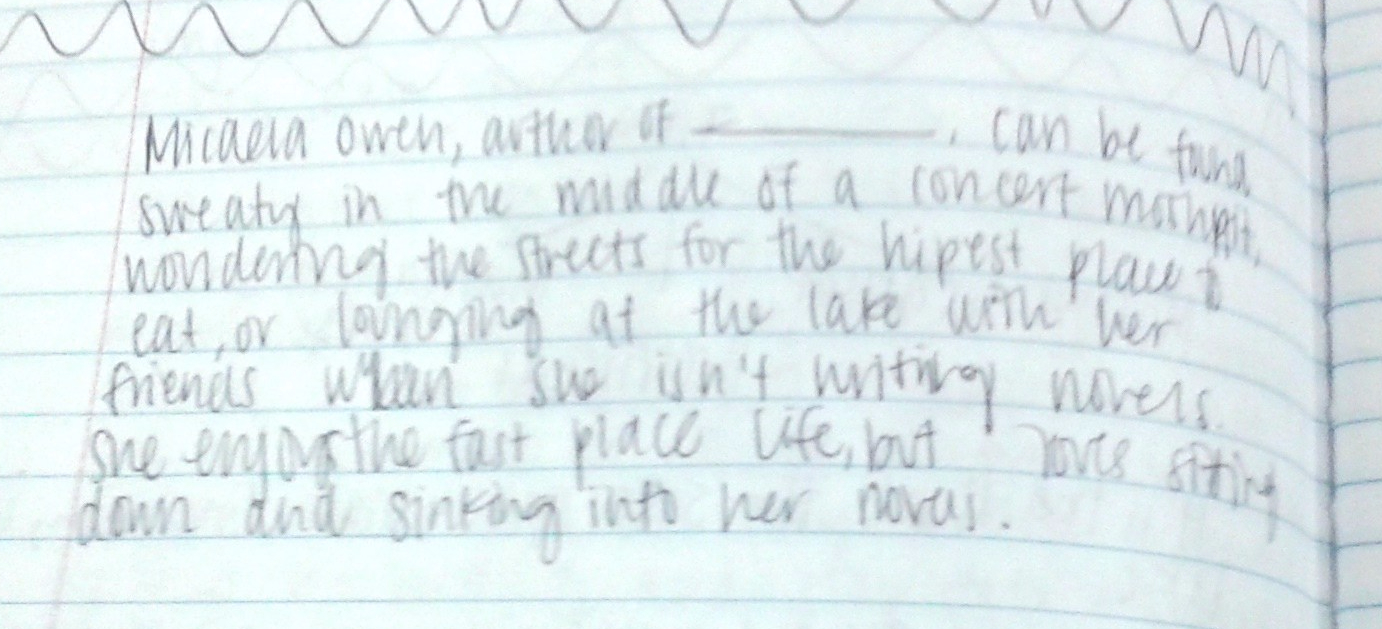 Micaela Owen, author of ________, can be fund
sweaty in the middle of a concert moshpit,
wondering the streets for the hipest place to
eat, or lounging at the lake with her
friends when she isn't writing novels.
She enjoys the fast place life, but loves siting
down and sinking into her novels.